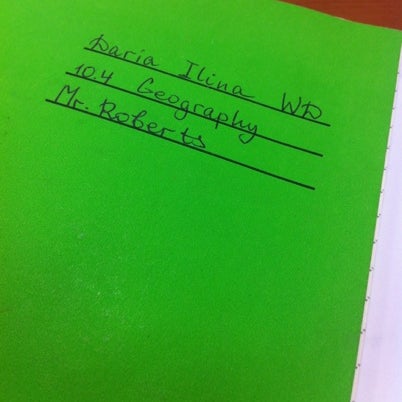 Daria Ilina WD
10.4 Geography
Mr. Roberts